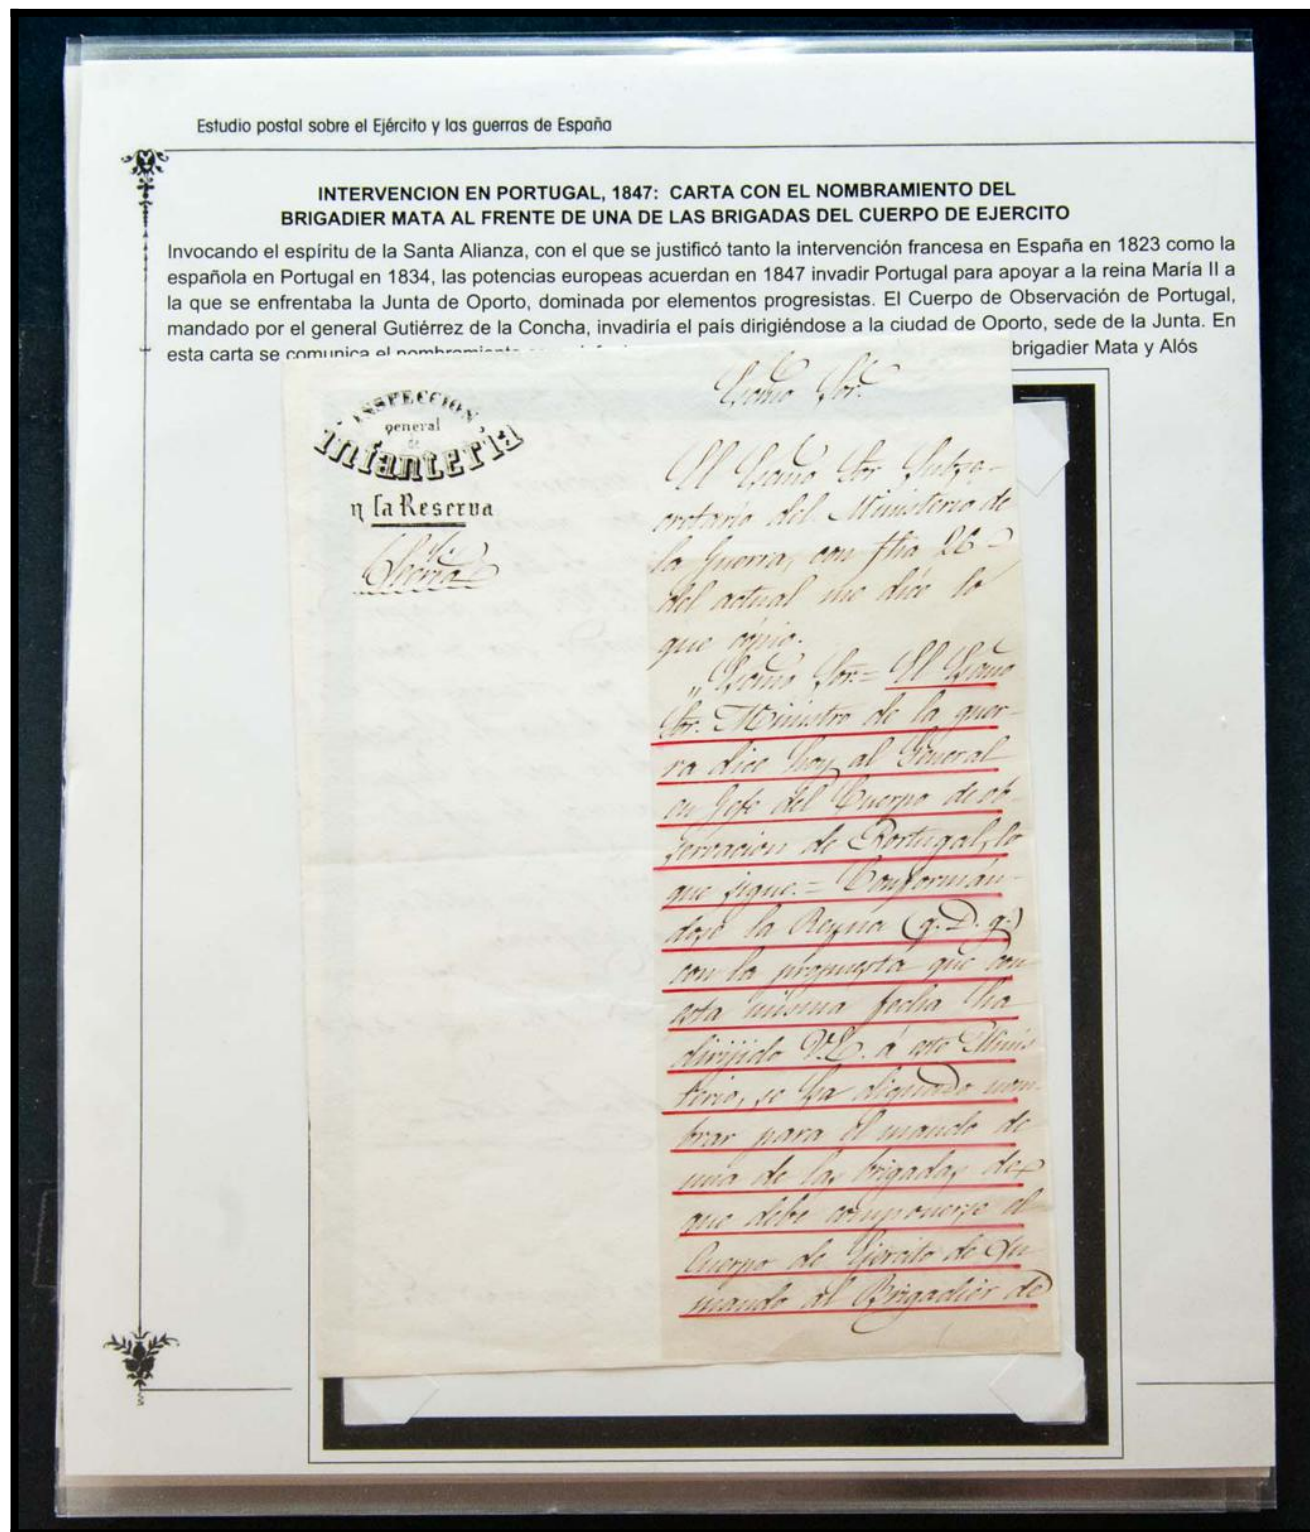 Estudio postal sobre el Ejército y las guerras de España
INTERVENCION EN PORTUGAL, 1847: CARTA CON EL NOMBRAMIENTO DEL
BRIGADIER MATA AL FRENTE DE UNA DE LAS BRIGADAS DEL CUERPO DE EJERCITO
Invocando el espíritu de la Santa Alianza, con el que se justificó tanto la intervención francesa en España en 1823 como la
española en Portugal en 1834, las potencias europeas acuerdan en 1847 invadir Portugal para apoyar a la reina María II a
la que se enfrentaba la Junta de Oporto, dominada por elementos progresistas. El Cuerpo de Observación de Portugal,
mandado por el general Gutiérrez de la Concha, invadiría el país dirigiéndose a la ciudad de Oporto, sede de la Junta. En
esta carta se comunica el nombramiento brigadier Mata y Alós
INSPECCION
general
de
infantería
y la Reserva
Excmo Sor.
El Excmo Sor Subse-
cretario del Ministerio de
la Guerra, con fha 26
del actual me dice lo
que cópio.
"Excmo Sor.= El Excmo
Sor. Ministro de la guer-
ra dice hoy al General
en Gefe del Cuerpo de ob-
servacion de Portugal, lo
que sigue.= Conformán-
dose la Reyna (q. D. g.)
con la propuesta que con
esta misma fecha ha
dirijido V.E. á este Minis
terio, se ha dignado nom-
brar para el mando de
una de las brigadas de
que debe componerse el
Cuerpo de Ejercito de su
mando al Brigadier de